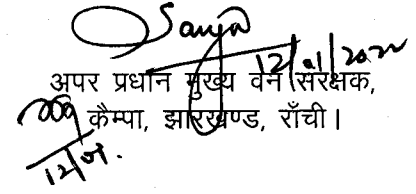 Sanja
12/01/2022
अपर प्रधान मुख्य वन संरक्षक,
कैम्पा, झारखण्ड, राँची।
12/01.